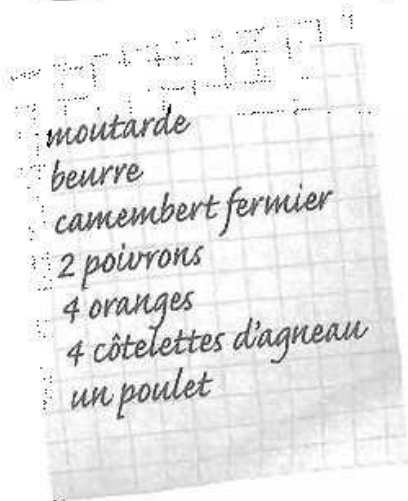 moutarde
beurre
camembert fermier
2 poivrons
4 oranges
4 côtelettes d'agneau
un poulet